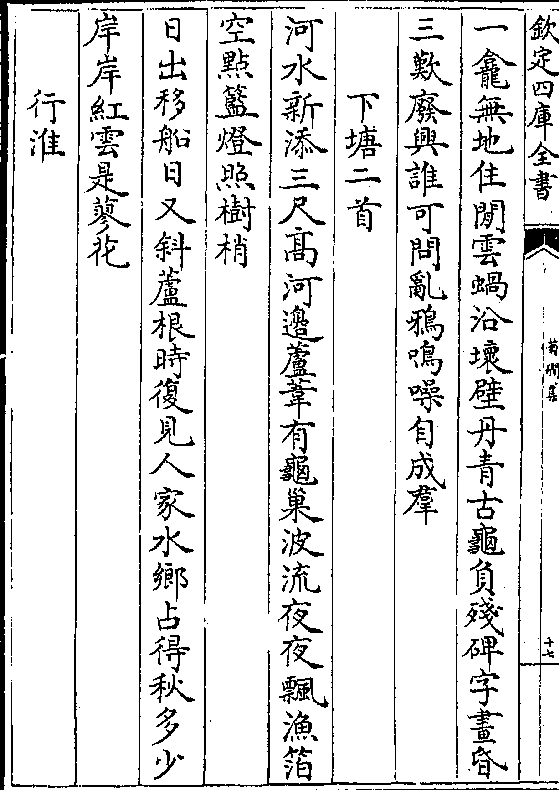 欽定四庫全書
菊磵集
十七
一龕無地住閒雲蝸沿壞壁丹青古龜負殘碑字畫昏
三歎廢興誰可問亂鴉鳴噪自成羣
下塘二首
河水新添三尺高河邉蘆葦有龜巢波流夜夜飄漁箔
空點籃燈照樹梢
日出移船日又斜蘆根時復見人家水鄉占得秋多少
岸岸紅雲是蓼花
行淮